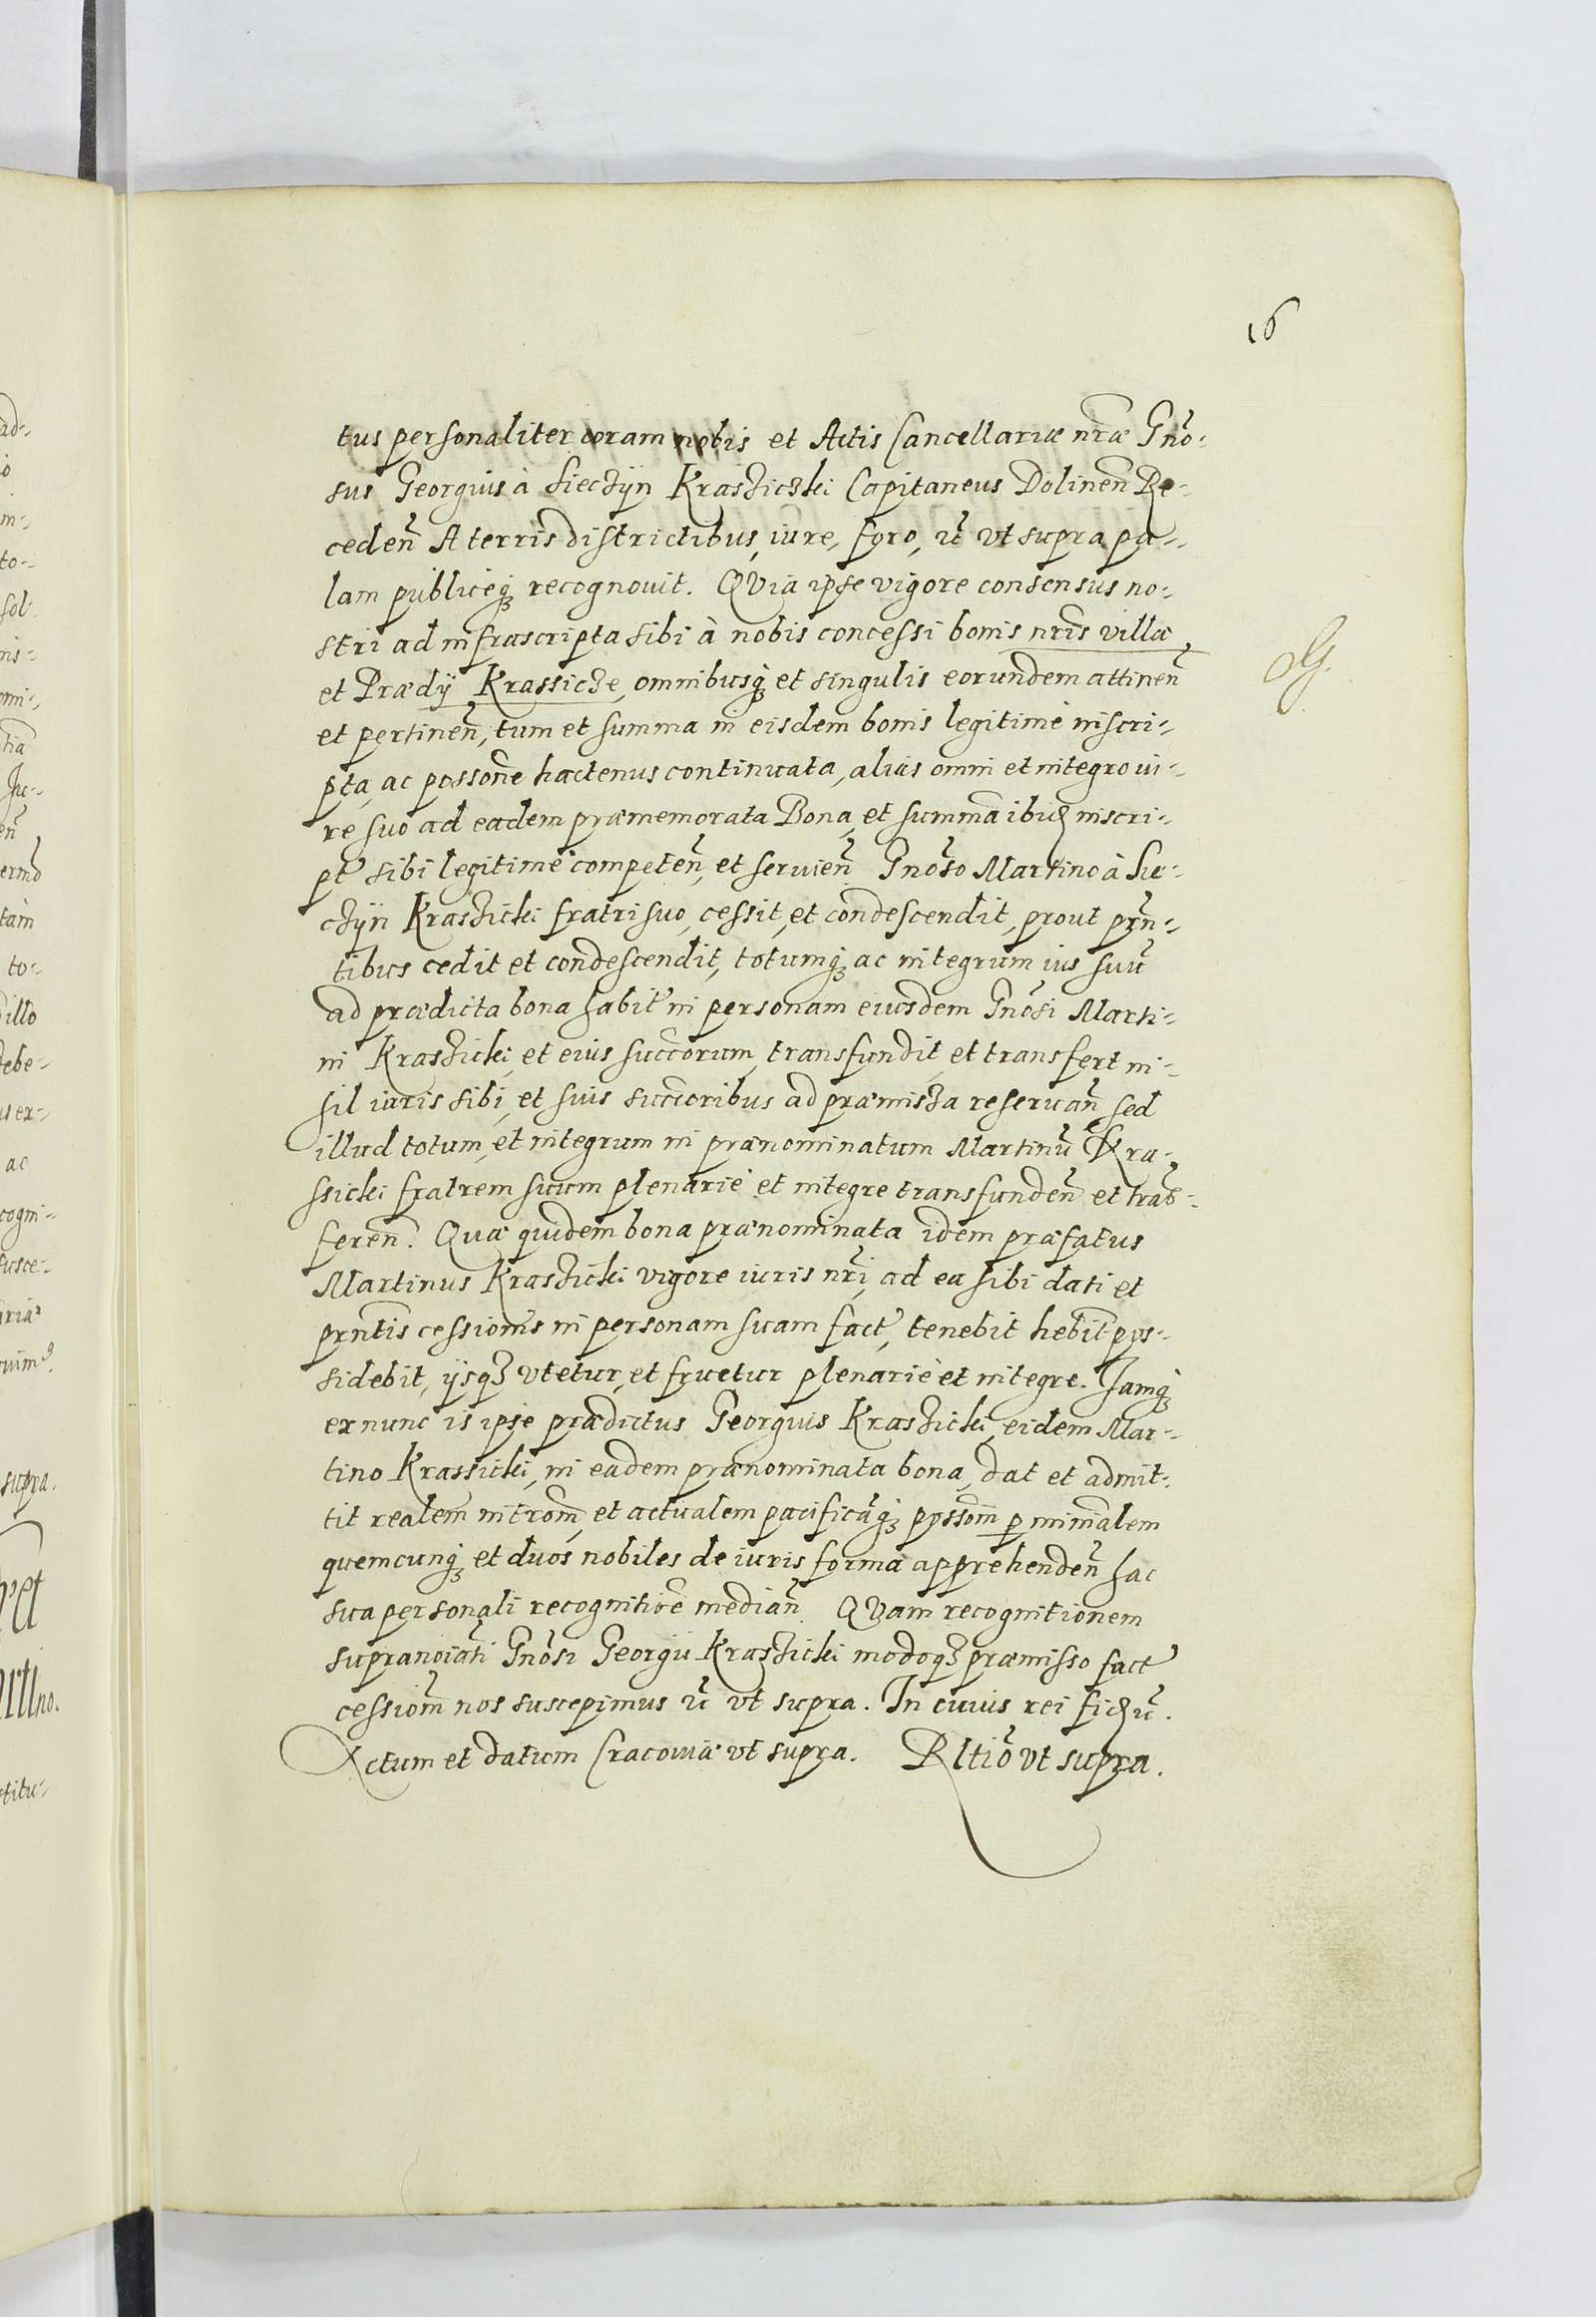 16
tus personaliter coram nobis et Actis Cancellariæ nr̃æ Gn̄o-
sus Georgius à Siecżyn Krasżicżki Capitaneus Dolinen̄ Re-
ceden̄ A terris districtibus, iure, foro, ut̄ vt supra pa-
lam publicèq̨ recognouit. QVia ipse vigore consensus no-
stri ad infrascripta sibi à nobis concessi bonis nr̃is villæ
et Prædÿ Krassicże, omnibusq̨ et singulis eorundem attinen̄
et pertinen̄, tum et summa in eisdem bonis legitimè inscri-
pta, ac posson̄e hactenus continuata, alias omni et integro iu-
re suo ad eadem præmemorata Bona, et summā ibid inscri-
pt̄ sibi legitimè competen̄, et seruien̄ Gn̄oso Martino à Sie-
cżÿn Krasżicki fratri suo, cessit, et condescendit, prout prn̄-
tibus cedit et condescendit, totumq̨ ac integrum ius suū
ad prædicta bona habit̄ in personam eiusdem Gn̄osi Marti-
ni Krasżicki, et eius succ̄orum, transfundit, et transfert ni-
hil iuris sibi, et suis succ̄oribus ad præmisża reseruan̄ sed
illud totum, et integrum in prænominatum Martinū Kra-
ssicki fratrem suum plenariè et integre transfunden̄ et trās-
feren̄. Quæ quidem bona prænominata idem præfatus
Martinus Krasżicki vigore iuris nr̃i, ad ea sibi dati et
prn̄tis cessionis in personam suam fact̄, tenebit hebīt pos-
sidebit, ÿsq̨ vtetur, et fruetur plenariè et integre. Jamq̨
ex nunc is ipse prædictus Georgius Krasżicki, eidem Mar-
tino Krassicki, in eadem prænominata bona, dat et admit-
tit realem intrōm, et actualem pacificāq̨ possōm p̱ minr̄alem
quemcunq̨ et duos nobiles de iuris forma apprehenden̄ hac
sua personali recognitiōe median̄ QVam recognitionem
supranoīati Gn̄osi Georgii Krasżicki modoq̨ præmisso fact̄
cessiōm nos suscepimus ut̄ vt supra. In cuius rei fid ū.
Actum et datum Cracouiæ vt supra. Rltiō vt supra.